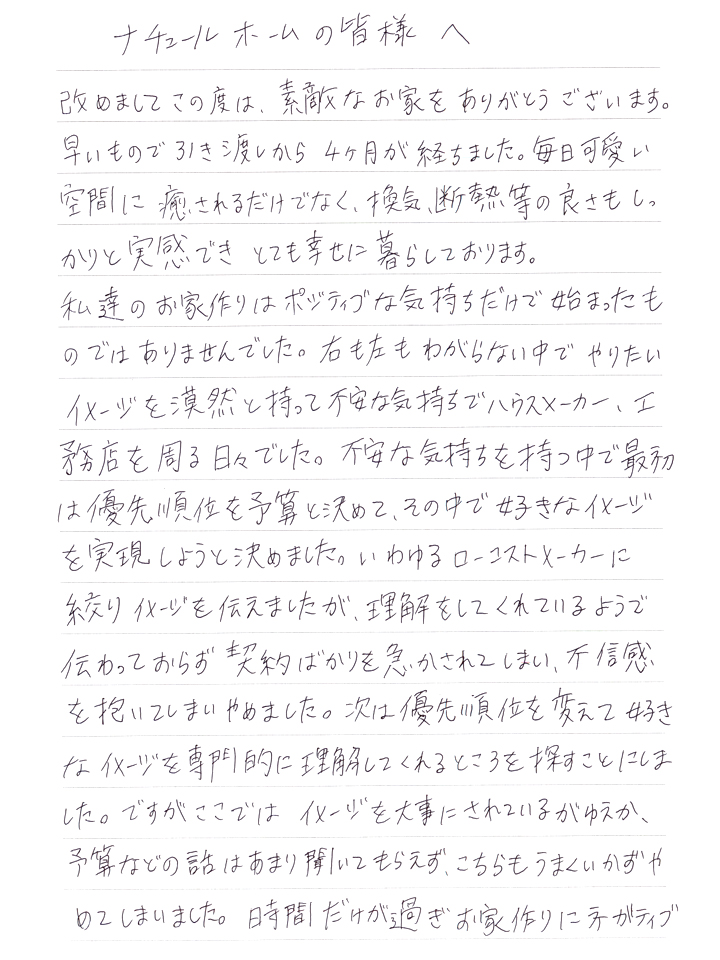 ナチュールホームの皆様へ
改めましてこの度は、素敵なお家をありがとうございます。
早いもので引き渡しから4ヶ月が経ちました。毎日可愛い
空間に癒されるだけでなく、換気、断熱等の良さもしっ
かりと実感できとても幸せに暮らしております。
私達のお家作りはポジティブな気持ちだけで始まったも
のではありませんでした。右も左もわがらない中でやりたい
イメージを漠然と持って不安な気持ちでハウスメーカー、工
務店を周る日々でした。不安な気持ちを持つ中で最初
は優先順位を予算と決めて、その中で好きなイメージ
を実現しようと決めました。いわゆるローコストメーカーに
絞りイメージを伝えましたが、理解をしてくれているようで
伝わっておらず契約ばかりを急かされてしまい、不信感
を抱いてしまいやめました。次は優先順位を変えて好き
なイメージを専門的に理解してくれるところを探すことにしま
した。ですがここではイメージを大事にされているがゆえか、
予算などの話はあまり聞いてもらえず、こちらもうまくいかずや
めてしまいました。時間だけが過ぎお家作りにネガティブ